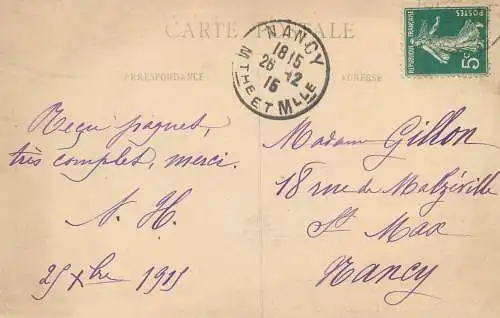 CARTE POSTALE
CORRESPONDANCE
ADRESSE
NANCY
18 15
26 -12
15
MTHE ET MLLE
POSTES
REPUBLIQUE FRANÇAISE
5c
Reçu paquet,
très complet, merci.
N. H.
25 Xbre 1915
Madame Gillon
18 rue de Malzéville
St Max
Nancy